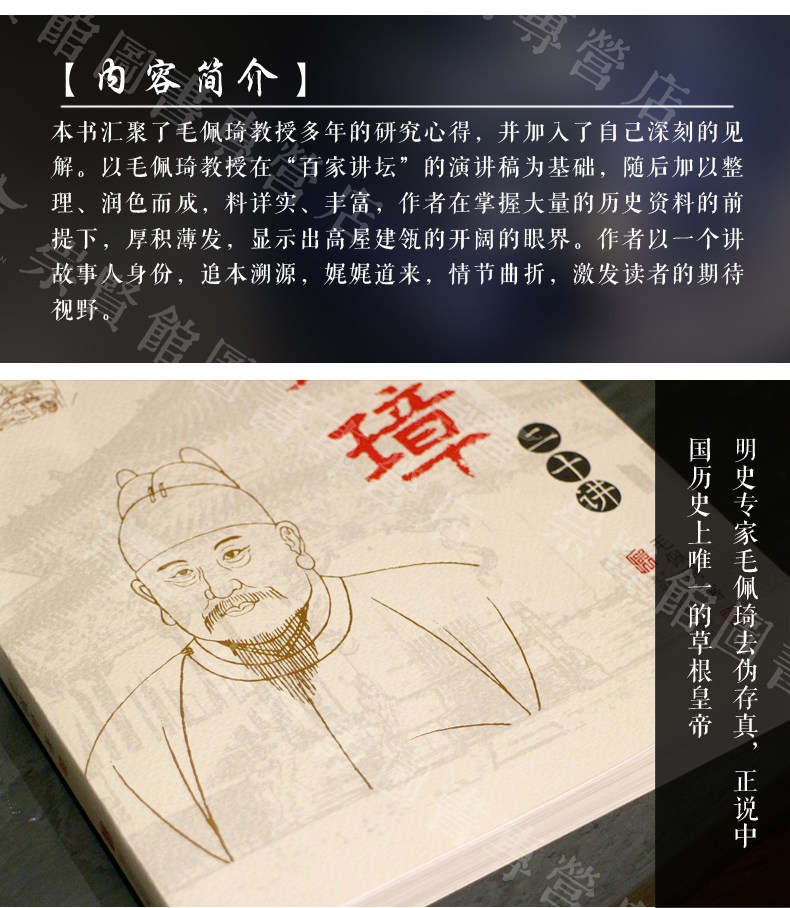 【内容简介】
本书汇聚了毛佩琦教授多年的研究心得，并加入了自己深刻的见
解。以毛佩琦教授在“百家讲坛”的演讲稿为基础，随后加以整
理、润色而成，料详实、丰富，作者在掌握大量的历史资料的前
提下，厚积薄发，显示出高屋建瓴的开阔的眼界。作者以一个讲
故事人身份，追本溯源，娓娓道来，情节曲折，激发读者的期待
视野。
璋
二十讲
明史专家毛佩琦去伪存真，正说中
国历史上唯一的草根皇帝